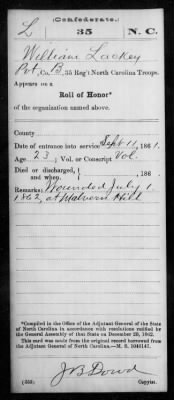 Confederate.
L 35 N. C.
William Lackey
Pvt, Co. B, 35 Reg't North Carolina Troops.
Appears on a
Roll of Honor*
of the organization named above.
County
Date of entrance into service Sept 11, 1861.
Age 23; Vol. or Conscript Vol.
Died or discharged, and when. , 186 .
Remarks: Wounded July 1
1862, at Malvern Hill
*Compiled in the Office of the Adjutant General of the State
of North Carolina in accordance with resolutions ratified by the
General Assembly of that State on December 20, 1862.
This card was made from the original record borrowed from
the Adjutant General of North Carolina.—M. S. 1046147.
J B Dowd
Copyist.